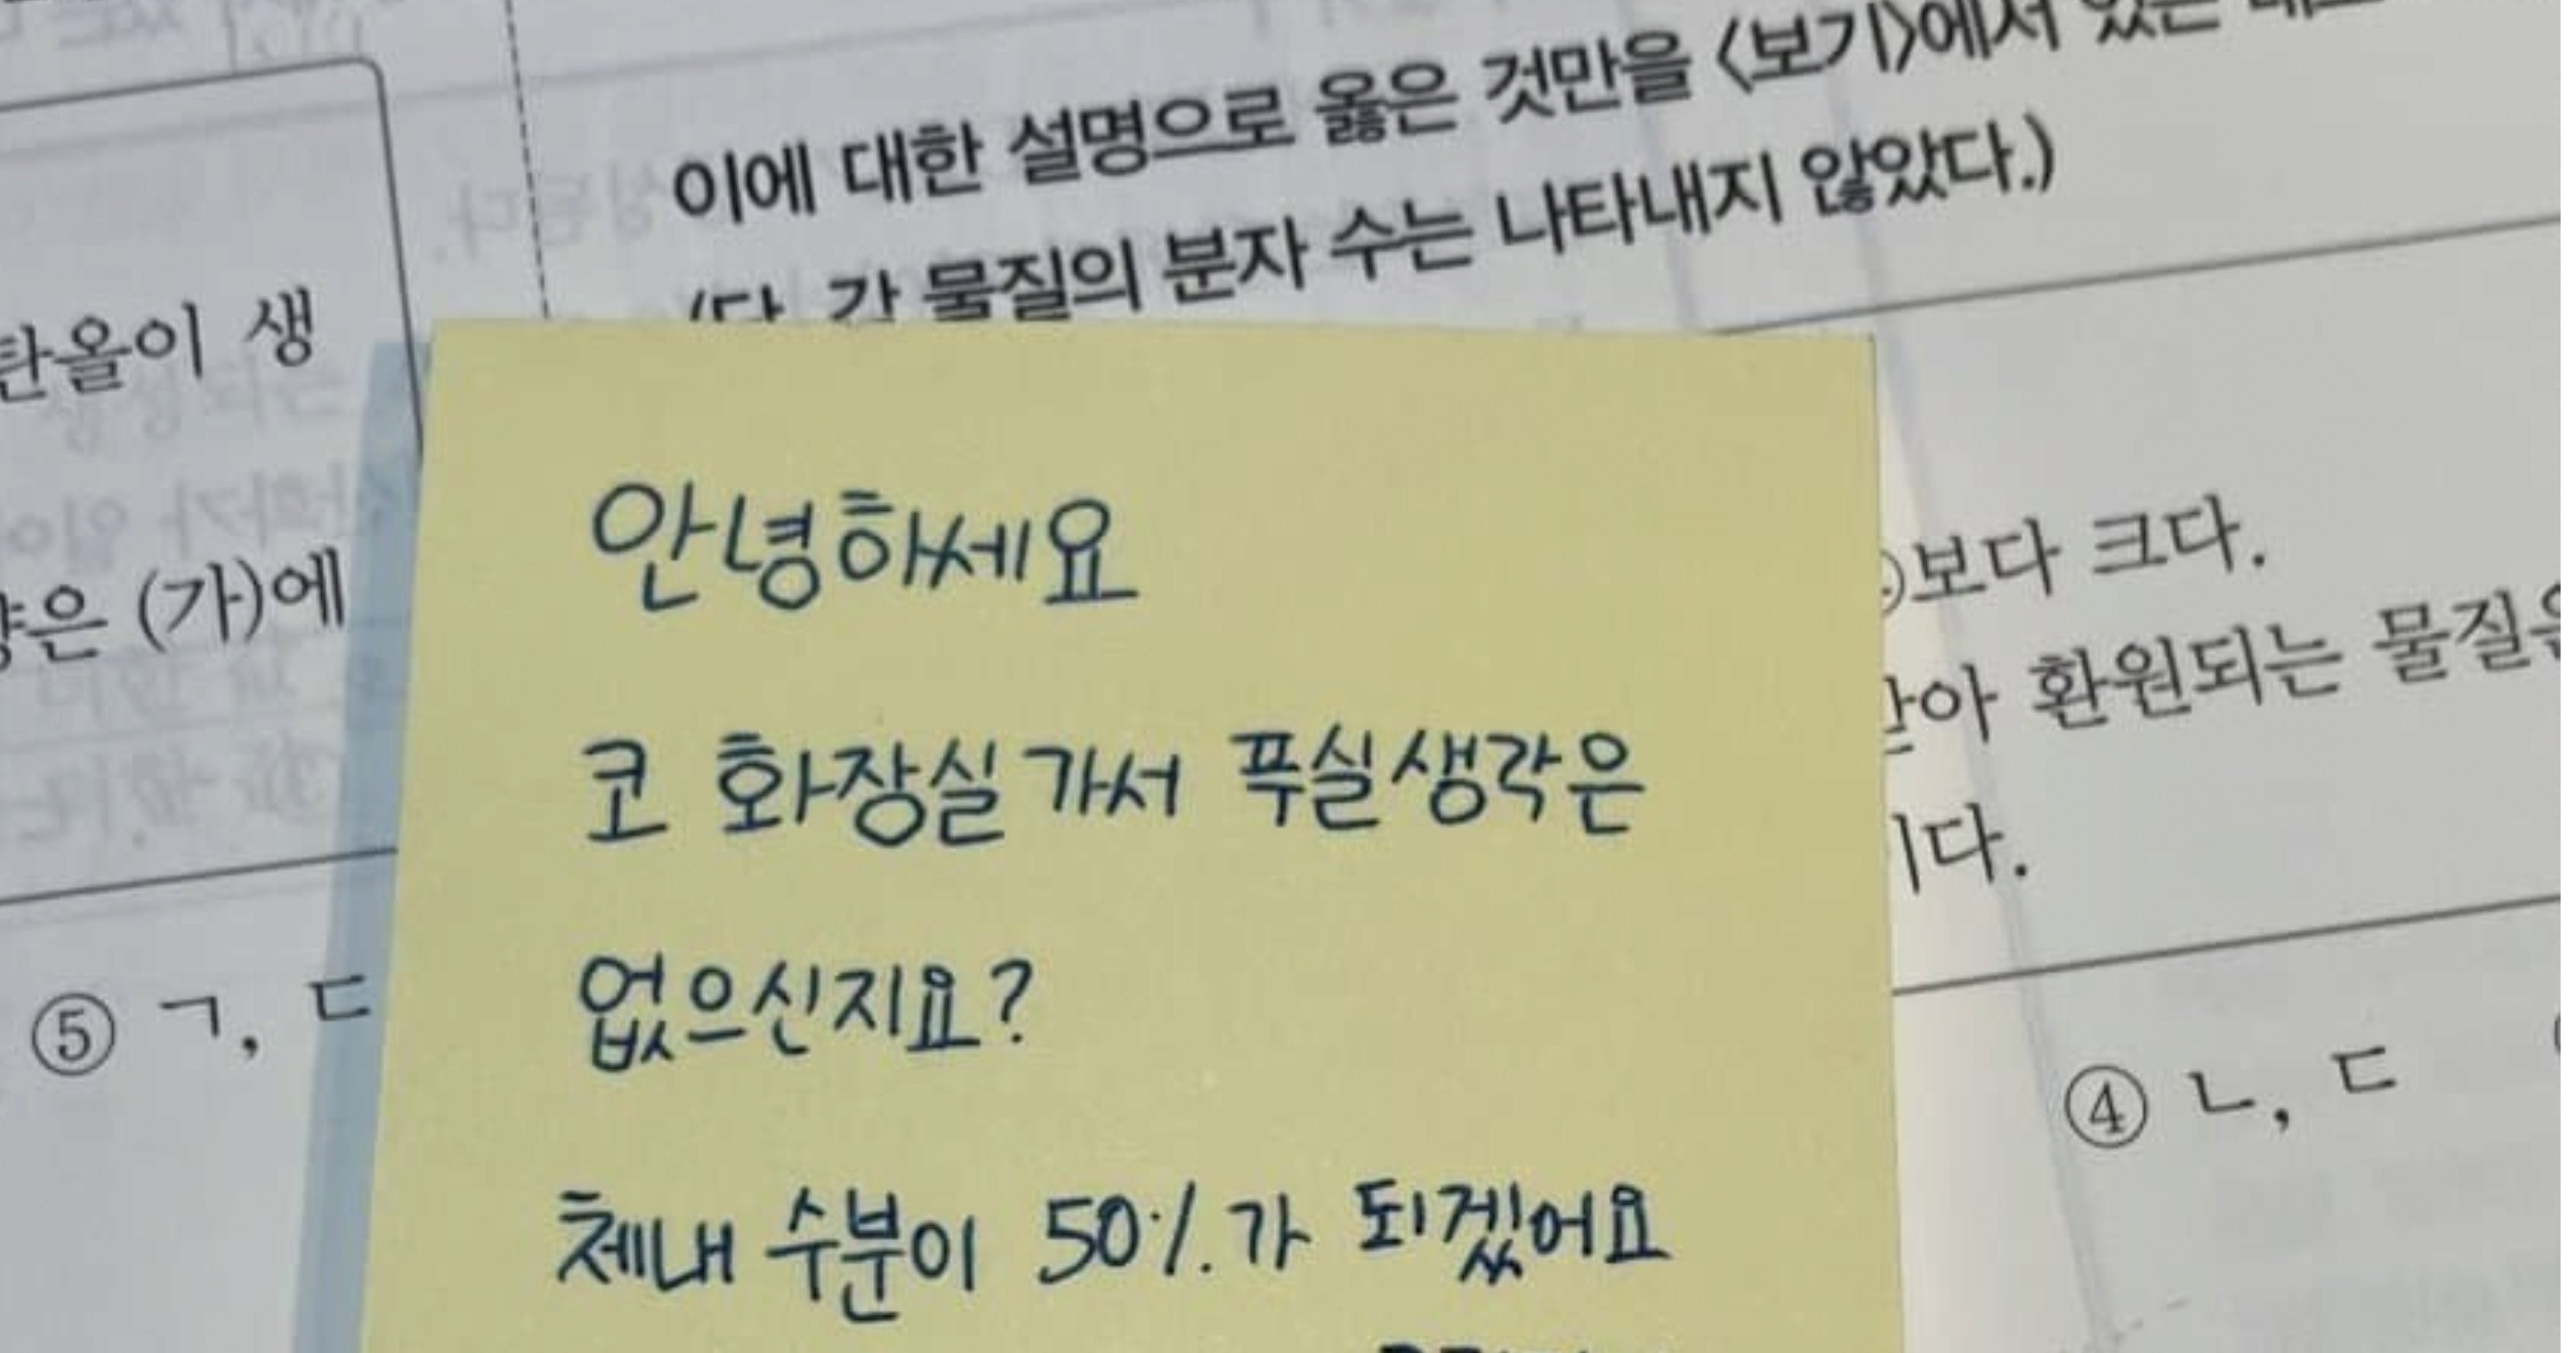 이에 대한 설명으로 옳은 것만을 <보기>에서 있는
물질의 분자 수는 나타내지 않았다.)
탄올이 생
은 (가)에
⑤ ㄱ, ㄷ
안녕하세요
코 화장실 가서 푸실 생각은
없으신지요?
체내 수분이 50%가 되겠어요
보다 크다.
환원되는 물질은
이다.
④ ㄴ, ㄷ